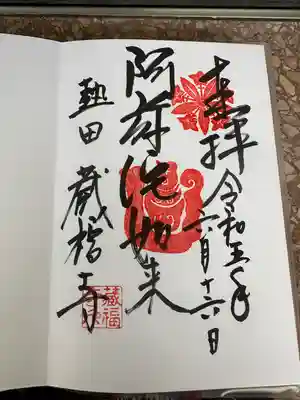 奉拝
令和五年
六月十六日
阿弥陀如来
熱田 蔵福寺
藏福